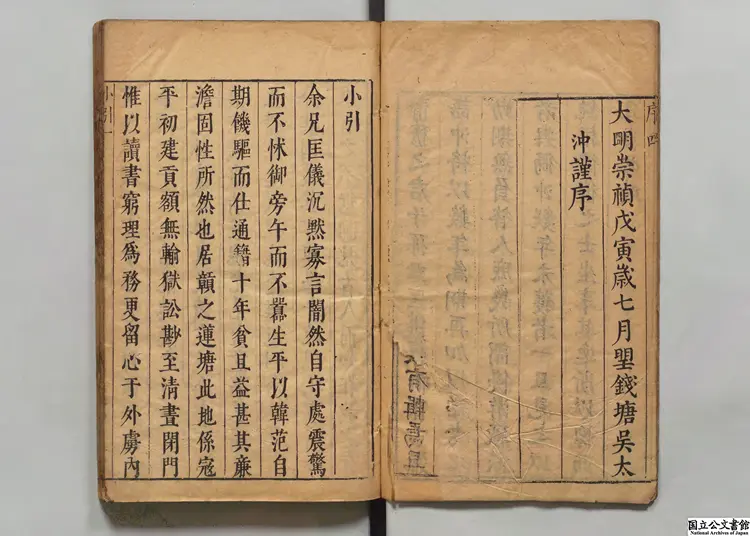 序四
大明崇禎戊寅歲七月朢錢塘吳太
沖謹序
小引
余兄匡儀沉黙寡言闇然自守處震驚
而不怵御旁午而不囂生平以韓范自
期饑驅而仕通籍十年貧且益甚其亷
澹固性所然也居贛之蓮塘此地係寇
平初建貢額無輸獄訟尠至清晝閉門
惟以讀書窮理爲務更留心于外虜內
小引一
国立公文書館
National Archives of Japan